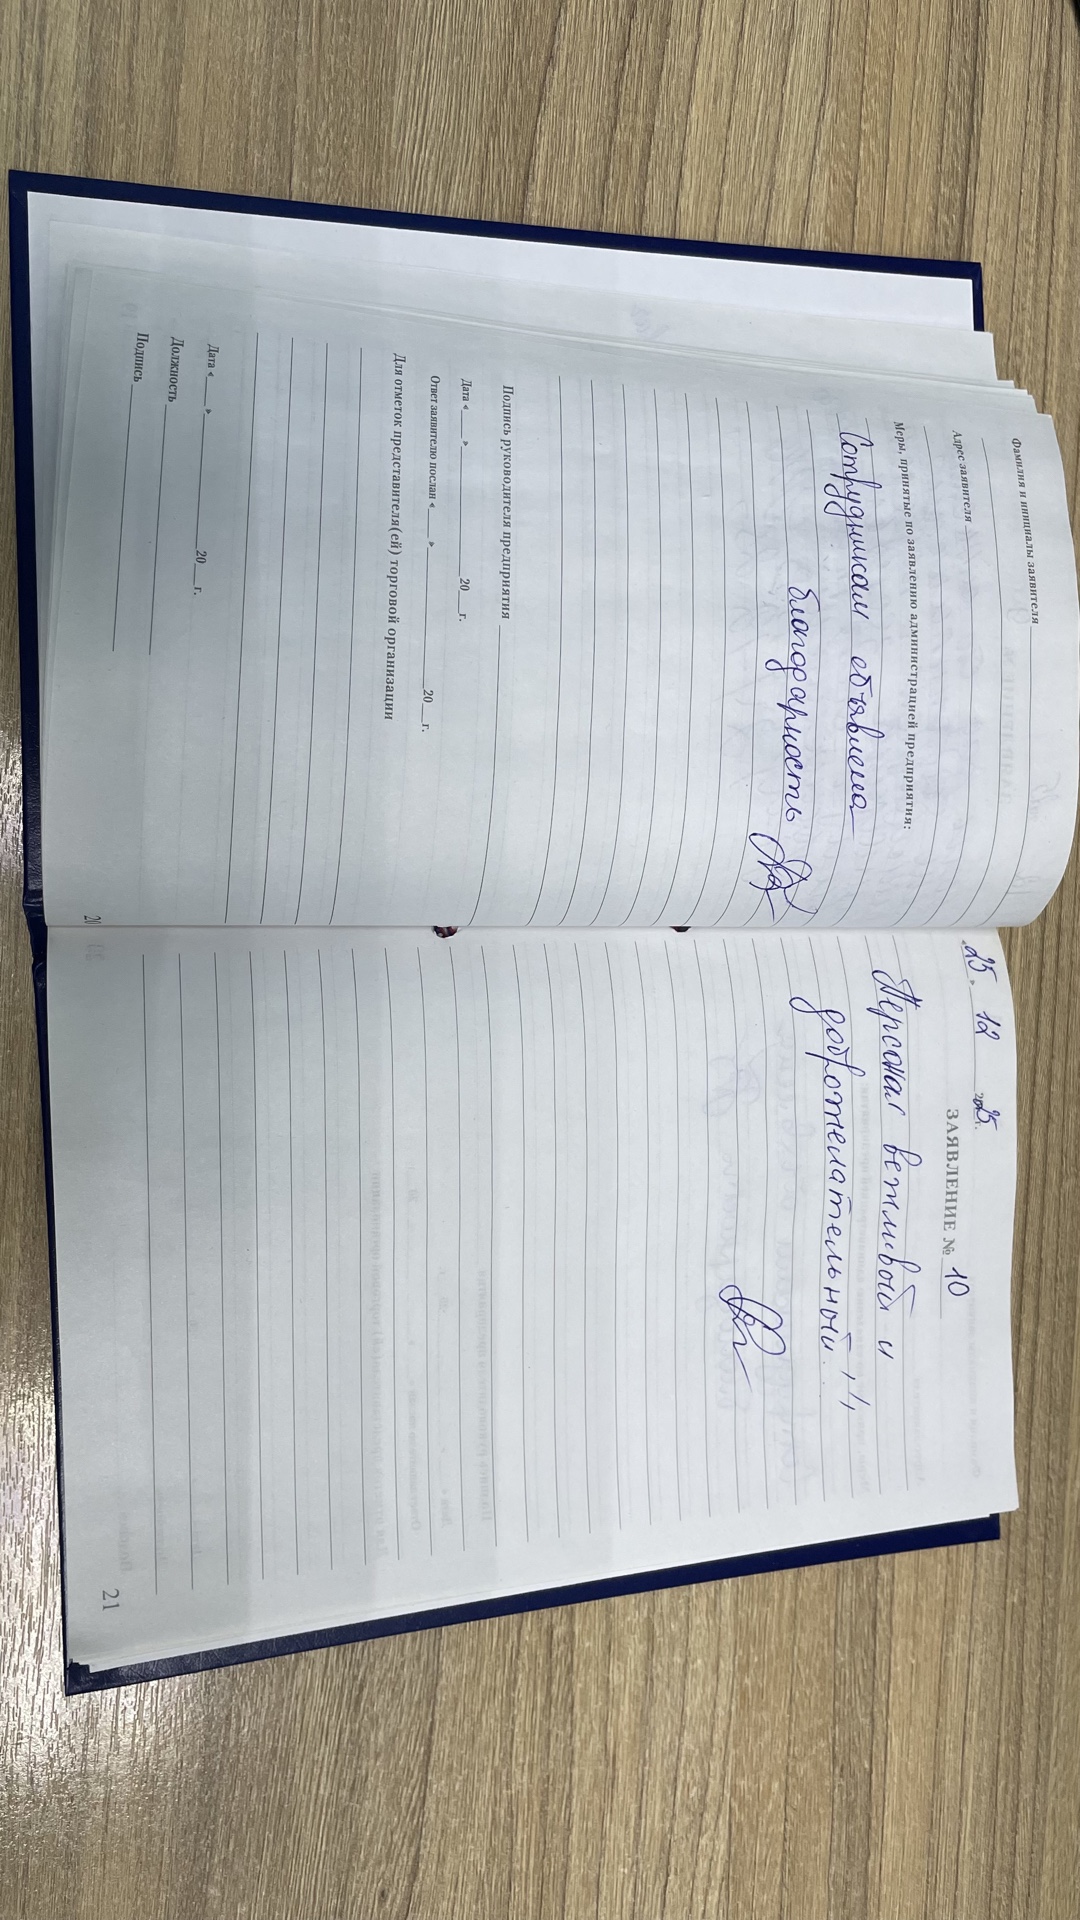 Фамилия и инициалы заявителя
Адрес заявителя
Меры, принятые по заявлению администрацией предприятия:
Сотрудникам объявлена
благодарность
Подпись руководителя предприятия
Дата « » 20 г.
Ответ заявителю послан « » 20 г.
Для отметок представителя(ей) торговой организации
Дата « » 20 г.
Должность
Подпись
20
«25» 12 2025г.
ЗАЯВЛЕНИЕ № 10
Персонал вежливый и
доброжелательный!!!
21